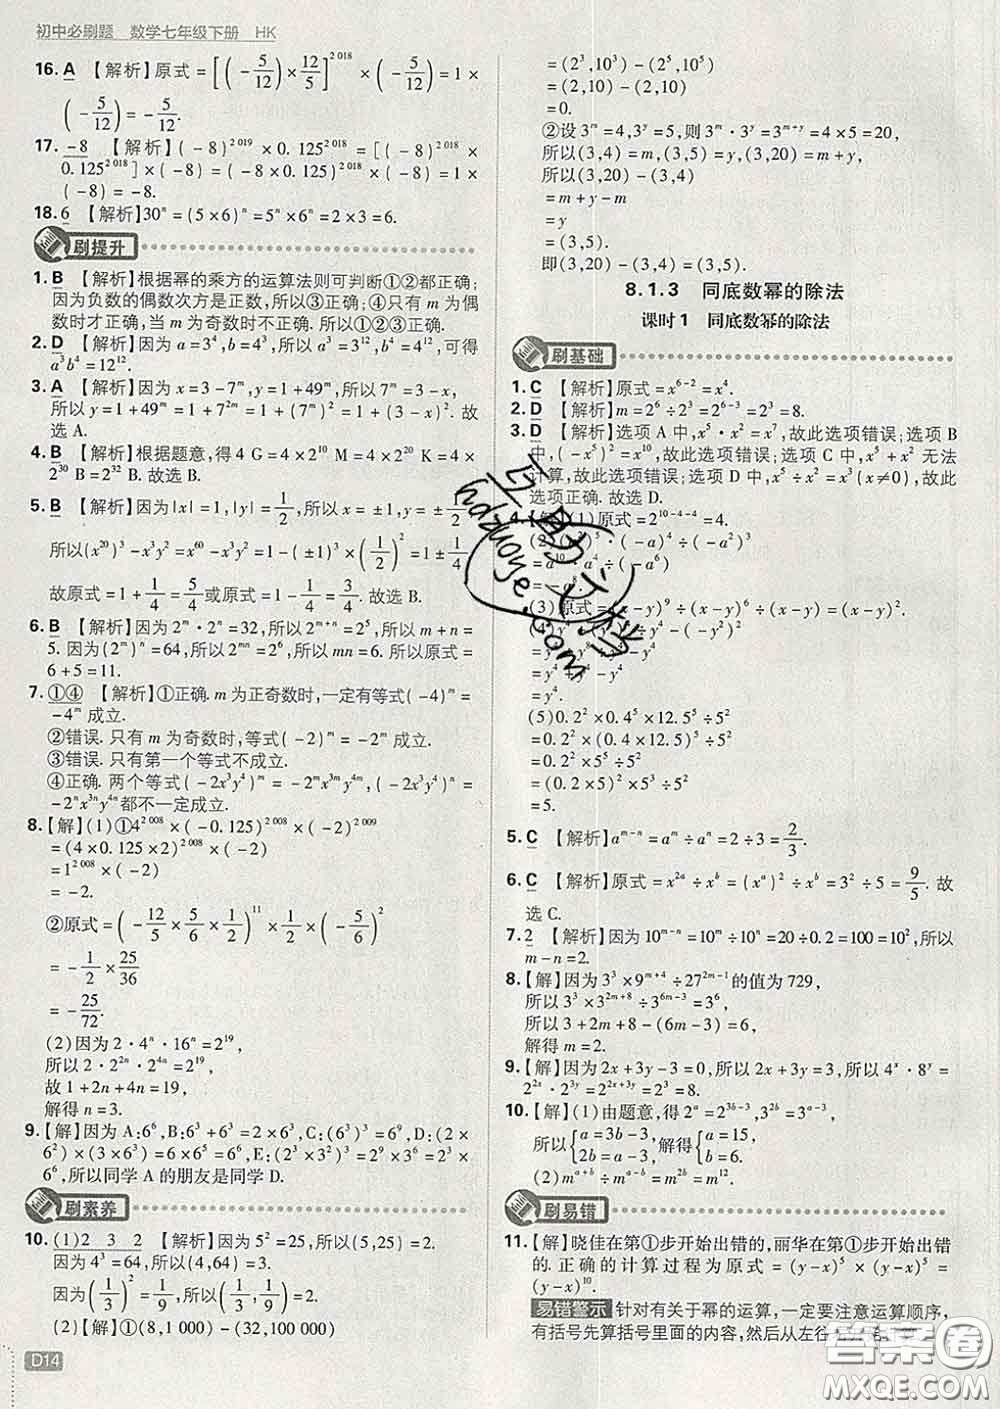 初中必刷题 数学七年级下册 HK
16. A 【解析】原式=[(-5/12)×12/5]^2 018×(-5/12)=1×
(-5/12)=-5/12.
17. -8 【解析】(-8)^2 019×0.125^2 018=[(-8)^2 018×
0.125^2 018]×(-8)=(-8×0.125)^2 018×(-8)=1×
(-8)=-8.
18. 6 【解析】30^n=(5×6)^n=5^n×6^n=2×3=6.
刷提升
1. B 【解析】根据幂的乘方的运算法则可判断①②都正确;
因为负数的偶数次方是正数,所以③正确;④只有m为偶
数时才正确,当m为奇数时不正确.故选B.
2. D 【解析】因为a=3^4,b=4^3,所以a^3=3^12,b^4=4^12,可得
a^3b^4=12^12.
3. A 【解析】因为x=3-7^m,y=1+49^m,所以7^m=3-x,
所以y=1+49^m=1+7^2m=1+(7^m)^2=1+(3-x)^2.故
选A.
4. B 【解析】根据题意,得4 G=4×2^10 M=4×2^20 K=4×
2^30 B=2^32 B.故选B.
5. B 【解析】因为|x|=1,|y|=1/2,所以x=±1,y=±1/2,
所以(x^20)^3-x^3y^2=x^60-x^3y^2=1-(±1)^3×(1/2)^2=1±1/4
故原式=1+1/4=5/4或原式=1-1/4=3/4.故选B.
6. B 【解析】因为2^m·2^n=32,所以2^m+n=2^5,所以m+n=
5.因为(2^m)^n=64,所以2^mn=2^6,所以mn=6,所以原式=
6+5=11.
7. ①④ 【解析】①正确.m为正奇数时,一定有等式(-4)^m=
-4^m成立.
②错误.只有m为奇数时,等式(-2)^m=-2^m成立.
③错误.只有第一个等式不成立.
④正确.两个等式(-2x^3y^4)^m=-2^mx^3my^4m,(-2x^3y^4)^n=
-2^nx^3ny^4n都不一定成立.
8.【解】(1)①4^2 008×(-0.125)^2 008×(-2)^2 009
=(4×0.125×2)^2 008×(-2)
=1^2 008×(-2)
=-2.
②原式=(-12/5×5/6×1/2)^11×(-5/6)^2
=-1/2×25/36
=-25/72.
(2)因为2·4^n·16^n=2^19,
所以2·2^2n·2^4n=2^19,
故1+2n+4n=19,
解得n=3.
9.【解】因为A:6^6,B:6^3+6^3=2×6^3,C:(6^3)^3=6^9,D:(2×
6^2)×(3×6^3)=6×6^5=6^6,E:[(2×3^2)^3]^2=3^6×
6^6,所以同学A的朋友是同学D.
刷素养
10. (1)2 3 2 【解析】因为5^2=25,所以(5,25)=2.
因为4^3=64,所以(4,64)=3.
因为(1/3)^2=1/9,所以(1/3,1/9)=2.
(2)【解】①(8,1 000)-(32,100 000)
D14
=(2^3,10^3)-(2^5,10^5)
=(2,10)-(2,10)
=0.
②设3^m=4,3^y=5,则3^m·3^y=3^m+y=4×5=20,
所以(3,4)=m,(3,5)=y,(3,20)=m+y,
所以(3,20)-(3,4)
=m+y-m
=y
=(3,5).
即(3,20)-(3,4)=(3,5).
8.1.3 同底数幂的除法
课时1 同底数幂的除法
刷基础
1. C 【解析】原式=x^6-2=x^4.
2. D 【解析】m=2^6÷2^3=2^6-3=2^3=8.
3. D 【解析】选项A中,x^5·x^2=x^7,故此选项错误;选项B
中,(-x^5)^2=x^10,故此选项错误;选项C中,x^5+x^2无法
计算,故此选项错误;选项D中,x^5÷x^2=x^3(x≠0),故此
选项正确.故选D.
4.【解】(1)原式=2^10-4-4=4.
=-a^9.
(3)原式=(x-y)^9÷(x-y)^6÷(x-y)=(x-y)^2.
=y^4.
(5)0.2^2×0.4^5×12.5^5÷5^2
=0.2^2×(0.4×12.5)^5÷5^2
=0.2^2×5^5÷5^2
=(0.2×5)^2×5
=5.
5. C 【解析】a^m-n=a^m÷a^n=2÷3=2/3.
6. C 【解析】原式=x^2a÷x^b=(x^a)^2÷x^b=3^2÷5=9/5.故
选C.
7. 2 【解析】因为10^m-n=10^m÷10^n=20÷0.2=100=10^2,所以
m-n=2.
8.【解】因为3^3×9^m+4÷27^2m-1的值为729,
所以3^3×3^2m+8÷3^6m-3=3^6,
所以3+2m+8-(6m-3)=6,
解得m=2.
9.【解】因为2x+3y-3=0,所以2x+3y=3,所以4^x·8^y=
2^2x·2^3y=2^2x+3y=2^3=8.
10.【解】(1)由题意,得2^a=2^3b-3,3^2b=3^a-3,
所以{a=3b-3,2b=a-3,解得{a=15,
11.【解】晓佳在第①步开始出错的,丽华在第①步开始出错
的.正确的计算过程为原式=(y-x)^5×(y-x)^5=
(y-x)^10.
易错警示 针对有关于幂的运算,一定要注意运算顺序,
刷易错
答案圈
MXQE.COM